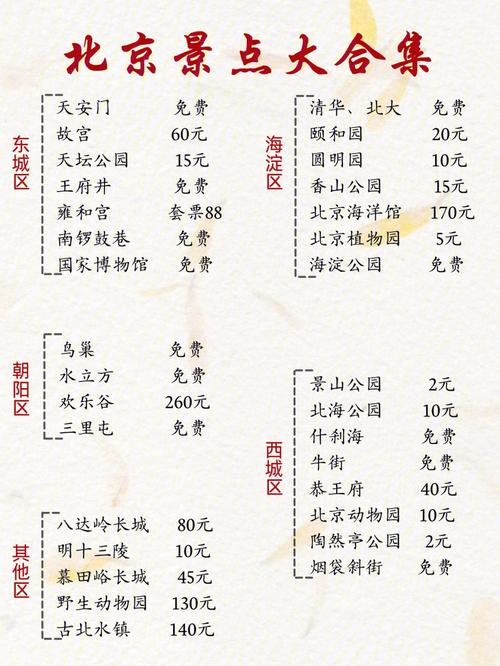 北京景点大合集
东城区
天安门 免费
故宫 60元
天坛公园 15元
王府井 免费
雍和宫 套票88
南锣鼓巷 免费
国家博物馆 免费
海淀区
清华、北大 免费
颐和园 20元
圆明园 10元
香山公园 15元
北京海洋馆 170元
北京植物园 5元
海淀公园 免费
朝阳区
鸟巢 免费
水立方 免费
欢乐谷 260元
三里屯 免费
西城区
景山公园 2元
北海公园 10元
什利海 免费
牛街 免费
恭王府 40元
北京动物园 10元
陶然亭公园 2元
烟袋斜街 免费
其他区
八达岭长城 80元
明十三陵 10元
慕田峪长城 45元
野生动物园 130元
古北水镇 140元